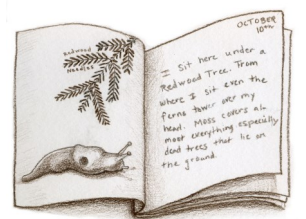 Redwood
Needles
OCTOBER
10th
I sit here under a
Redwood Tree. From
where I sit even the
ferns tower over my
head. Moss covers al
most everything especially
dead trees that lie on
the ground.